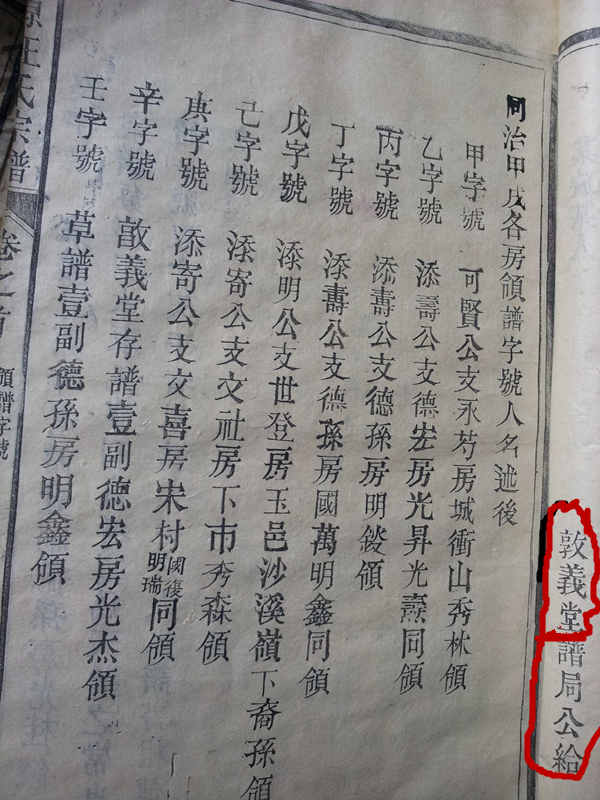 敦義堂譜局公給
同治甲戌各房領譜字號人名述後
甲字號 可賢公支永芍房城衝山秀林領
乙字號 添壽公支德宏房光昇光熹同領
丙字號 添壽公支德孫房明鋑領
丁字號 添壽公支德孫房國萬明鑫同領
戊字號 添明公支世登房玉邑沙溪嶺下裔孫領
己字號 添寄公支文社房下市秀森領
庚字號 添寄公支文喜房宋村國復明瑞同領
辛字號 敦義堂存譜壹副德宏房光杰領
壬字號 草譜壹副德孫房明鑫領
汪氏宗譜 卷之首 領譜字號